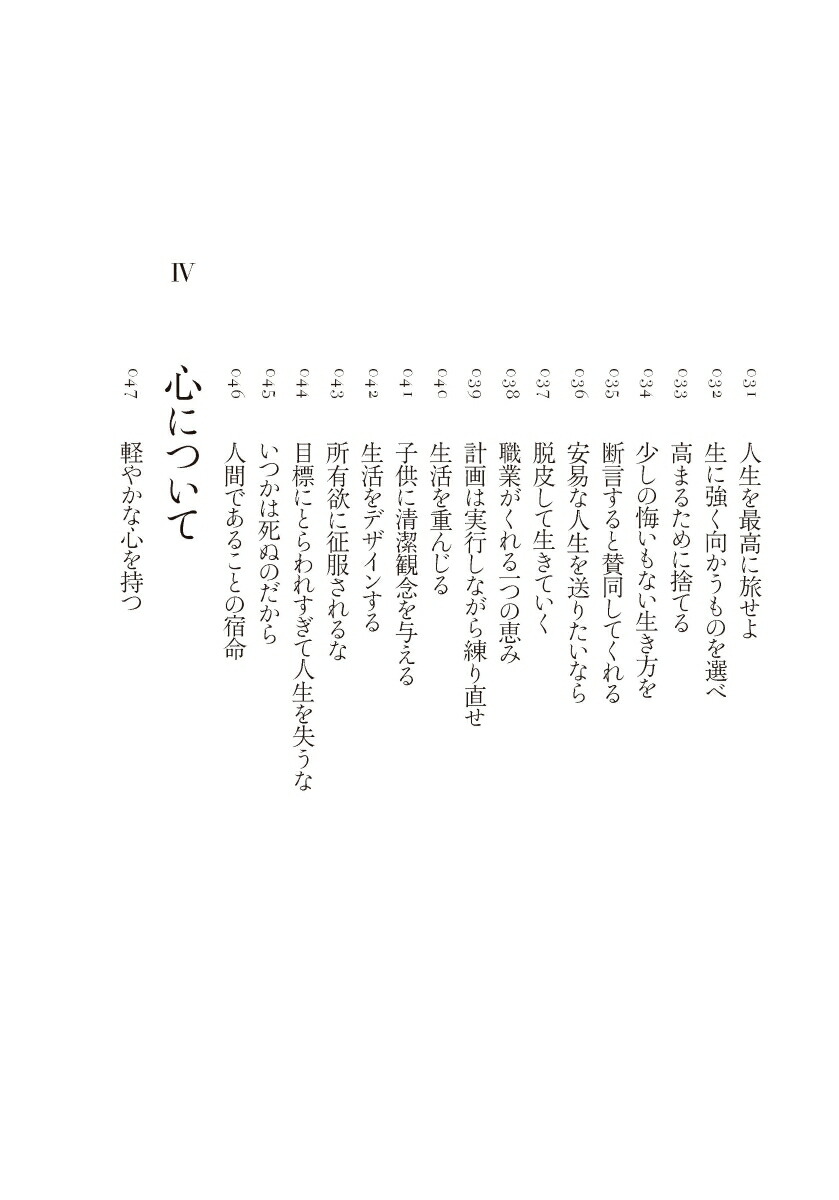 031 人生を最高に旅せよ
032 生に強く向かうものを選べ
033 高まるために捨てる
034 少しの悔いもない生き方を
035 断言すると賛同してくれる
036 安易な人生を送りたいなら
037 脱皮して生きていく
038 職業がくれる一つの恵み
039 計画は実行しながら練り直せ
040 生活を重んじる
041 子供に清潔観念を与える
042 生活をデザインする
043 所有欲に征服されるな
044 目標にとらわれすぎて人生を失うな
045 いつかは死ぬのだから
046 人間であることの宿命
Ⅳ 心について
047 軽やかな心を持つ